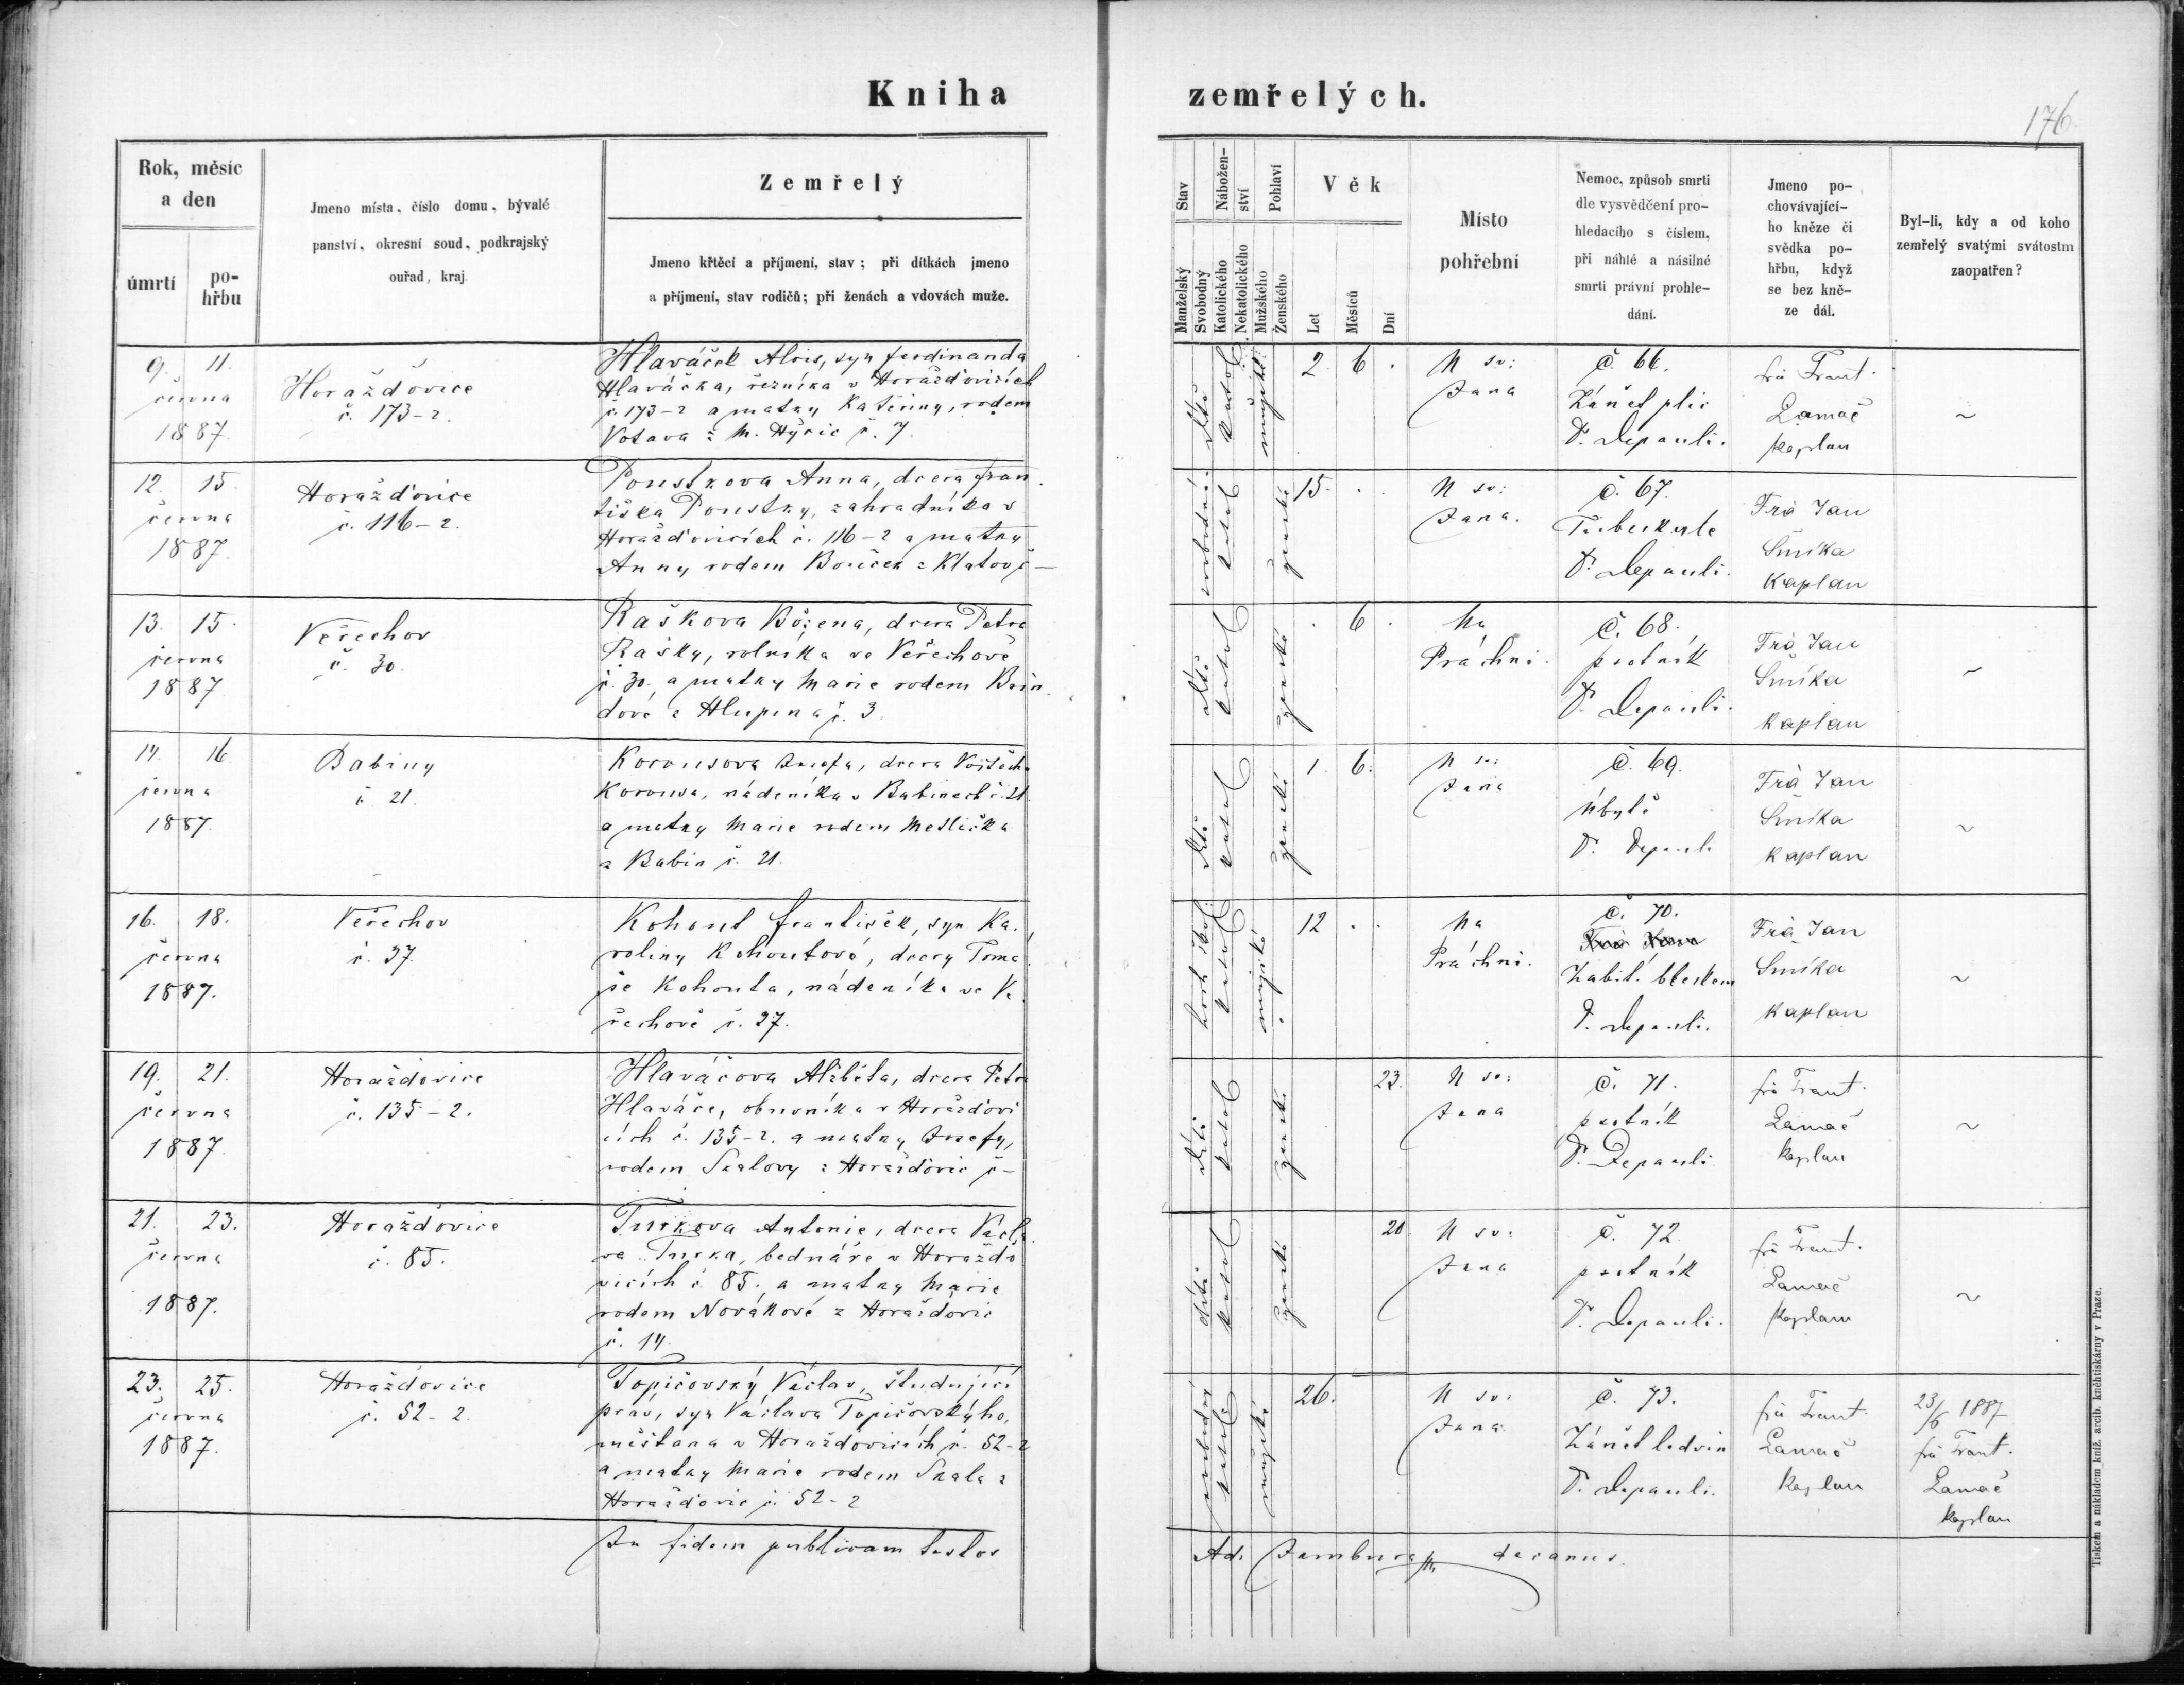 Kniha zemřelých.
176
Rok, měsíc
a den
úmrtí
po-
hřbu
Jmeno místa, číslo domu, bývalé
panství, okresní soud, podkrajský
ouřad, kraj.
Zemřelý
Jmeno křtěcí a příjmení, stav; při dítkách jmeno
a příjmení, stav rodičů; při ženách a vdovách muže.
Stav
Manželský
Svobodný
Nábožen-
ství
Katolického
Nekatolického
Pohlaví
Mužského
Ženského
Věk
Let
Měsíců
Dní
Místo
pohřební
Nemoc, způsob smrti
dle vysvědčení pro-
hledacího s číslem,
při náhlé a násilné
smrti právní prohle-
dání.
Jmeno po-
chovávající-
ho kněze či
svědka po-
hřbu, když
se bez kně-
ze dál.
Byl-li, kdy a od koho
zemřelý svatými svátostmi
zaopatřen?
9. 11.
června
1887.
Horažďovice
č. 173-2.
Hlaváček Alois, syn Ferdinanda
Hlaváčka, řezníka v Horažďovicích
č. 173-2 a matky Kateřiny, rodem
Votava z M. Hýřic č. 7.
dítě
katol.
mužské
2. 6 .
U sv:
Jana
č. 66.
Zánět plic
D. Depauli.
frá Frant.
Lamač
kaplan
~
12. 15.
června
1887.
Horažďovice
č. 116-2.
Poustkova Anna, dcera Fran
tiška Poustky, zahradníka v
Horažďovicích č. 116-2 a matky
Anny rodem Bouček z Klatov č —
svobodná
katol
ženské
15. . .
U sv:
Jana.
č. 67.
Tuberkule
D. Depauli.
Frá Jan
Šmíka
Kaplan
13. 15.
června
1887
Veřechov
č. 30.
Raškova Božena, dcera Petra
Rašky, rolníka ve Veřechově
č. 30. a matky Marie rodem Brin
dové z Hlupína č. 3.
dítě
katol
ženské
. 6 .
Na
Práchni.
č. 68.
psotník
D. Depauli.
Frá Jan
Šmíka
kaplan
~
14. 16
června
1887
Babiny
č. 21.
Korousova Josefa, dcera Vojtěcha
Korousa, nádeníka v Babinech č. 21.
a matky Marie rodem Medlička
z Babin č. 21.
dítě
katol
ženské
1. 6.
U sv:
Jana
č. 69.
úbytě
D. Depauli
Frá Jan
Šmíka
kaplan
~
16. 18.
června
1887.
Veřechov
č. 37.
Kohout František, syn Ka.
roliny Kohoutové, dcery Tomá
še Kohouta, nádeníka ve Ve
řechově č. 37.
katol
mužské
12 . .
Na
Práchni.
č. 70.
Zabit. bleskem
D. Depauli.
Frá Jan
Šmíka
kaplan
~
19. 21.
června
1887
Horažďovice
č. 135-2.
Hlaváčova Alžběta, dcera Petra
Hlaváče, obuvníka v Horažďovi
cích č. 135-2. a matky Josefy,
rodem Skalovy z Horažďovic č -
dítě
katol
ženské
23.
U sv:
Jana
č. 71.
psotník
D. Depauli
frá Frant.
Lamač
kaplan
~
21. 23.
června
1887.
Horažďovice
č. 85.
Turkova Antonie, dcera Václa
va Turka, bednáře v Horažďo
vicích č. 85. a matky Marie
rodem Novákové z Horažďovic
č. 14
dítě
katol
ženské
20
U sv:
Jana
č. 72
psotník
D. Depauli.
frá Frant.
Lamač
kaplan
~
23. 25.
června
1887.
Horažďovice
č. 52-2.
Topičovský Václav, študující
práv, syn Václava Topičovského,
měšťana v Horažďovicích č. 52-2
a matky Marie rodem Skala z
Horažďovic č. 52-2
svobodný
katol
mužské
26.
U sv:
Jana
č. 73.
Zánět ledvin
D. Depauli.
frá Frant
Lamač
kaplan
23/6 1887
frá Frant.
Lamač
kaplan
In fidem publicam testor
Ad. decanus.
Tiskem a nákladem kníž. arcib. kněhtiskárny v Praze.